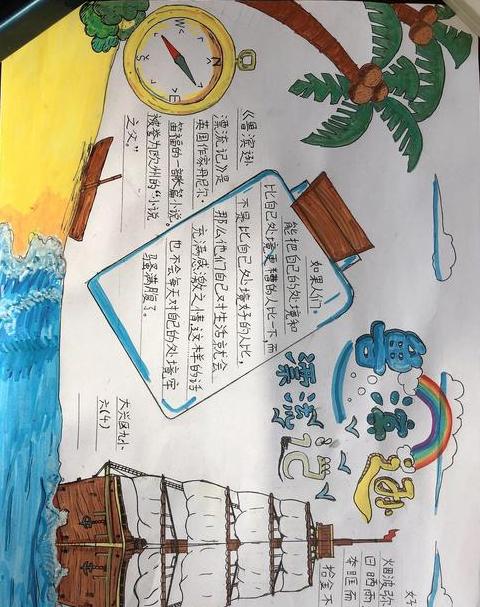 鲁滨逊
漂流记
《鲁滨孙
漂流记》是
英国作家丹尼尔·
笛福的一部长篇小说。
被誉为欧洲的“小说
之父”。
如果人们
能把自己的处境和
比自己处境更糟的人比一下,而
不是比自己处境好的人比,
那么他们自己对生活就会
充满感激之情这样的话
也不会每天对自己的处境牢
骚满腹了。
好
烟波弥
日晒雨
拾金不
大兴区九小
六(4)
N
E
S
W